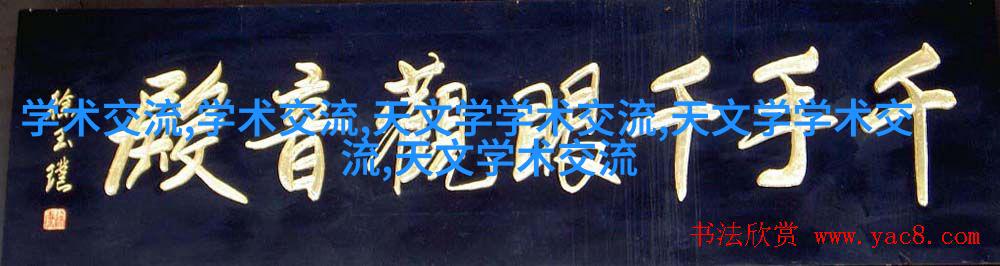 千手千眼觀音殿
徐玉璞
学术交流,学术交流,天文学学术交流,天文学学术交
流,天文学术交流
书法欣赏 www.yac8.com